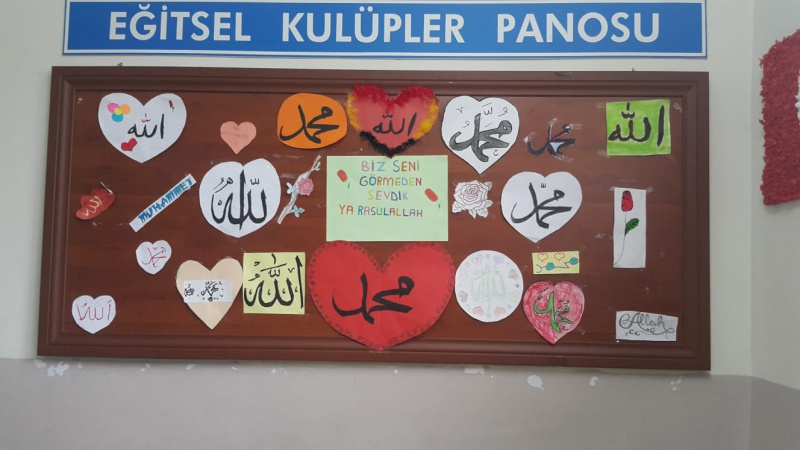 EĞİTSEL KULÜPLER PANOSU
الله
محمد
الله
محمد
محمد
الله
الله
MUHAMMED
الله
BİZ SENİ
GÖRMEDEN
SEVDİK
YA RASULALLAH
محمد
محمد
محمد
الله
محمد
الله
محمد
الله
Allah